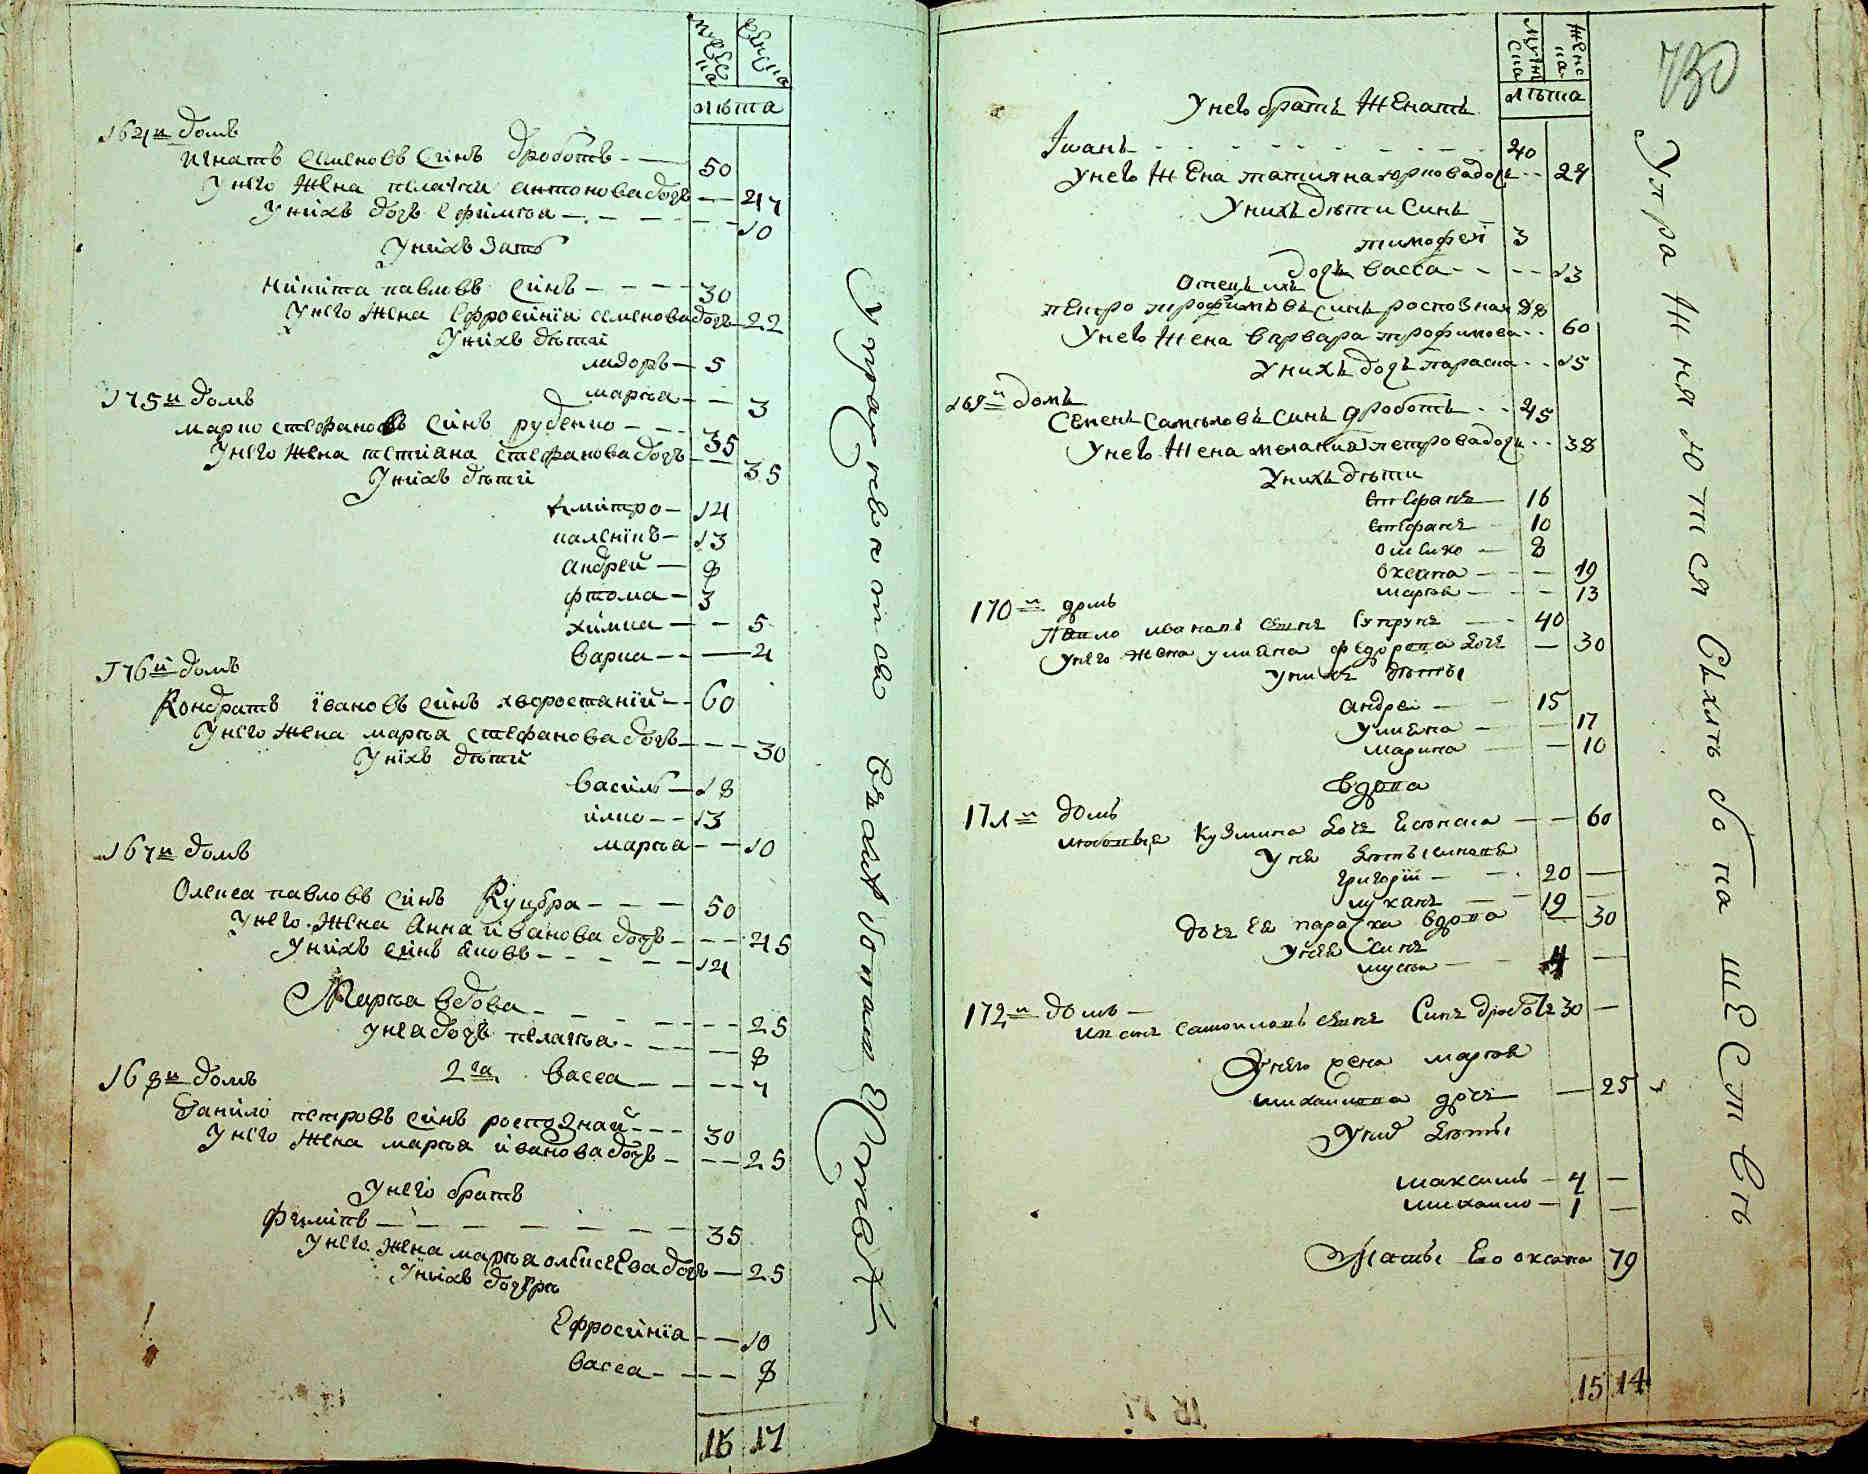 мужеска женска
лѣта
164й домъ
игнатъ семеновъ синъ дроботъ 50
Унего жена пелагия антонова дочь 47
Унихъ дочь Ефимъя 10
Унихъ зать
никита павловъ синъ 30
Унего жена Ефросинія семенова дочь 22
Унихъ дѣти
сидоръ 5
маръя 3
175й домъ
марко стефановъ синъ руденко 35
Унего жена тетіяна стефанова дочь 35
Унихъ дѣти
дмитро 14
каленикъ 13
андрей 8
фтома 3
химка 5
варка 4
176й домъ
Кондратъ івановъ синъ хворостаній 60
Унего жена маръя стефанова дочь 30
Уніхъ дѣтий
василь 18
илко 13
маръя 10
167й домъ
Олекса павловъ синъ Куцобра 50
Унего жена Анна иванова дочь 45
Унихъ синъ яковъ 14
Маръя вдова 25
унеа дочь пелагъа 8
2га васса 7
168й домъ
данило петровъ синъ роспознай 30
Унего жена маръя иванова дочь 25
Унего братъ
филипъ 35
Унего жена маръя олексеева дочь 25
Унихъ дочери
Ефросинія 10
васса 8
16 17
Упражняются вѣхлѣбопашествѣ
мужеска женска
лѣта
730
Унего братъ женатъ
Іванъ 40
Унего жена татияна карповадочь 27
Унихъ дѣти синъ
тимофей 3
дочь васса 13
Отецъ ихъ
петро трофимовъ синъ роспознай 88
Унего жена варвара трофимова 60
Унихъ дочь параска 15
169й домъ
Семенъ самойловъ синъ дроботъ 45
Унего жена меланкия петровадочь 38
Унихъ дѣти
стефанъ 16
стефанъ 10
ониско 8
оксана 19
марья 13
170й домъ
Павло ивановъ синъ Супрунъ 40
Унего жена улиана федорова дочь 30
Унихъ дѣты
андрей 15
Улиана 17
марина 10
вдова
171й домъ
Кузмина дочь 60
У нея
григорій 20
луканъ 19
дочь ея параска вдова 30
Унея синъ
мусии 4
172й домъ
самойловъ синъ Синъ дроботъ 30
Унего жена марья
михайлова дочь 25
Уних дѣты
максимъ 4
михайло 1
Маты Его оксана 79
15 14
Упражняются Сѣхлѣбопашествѣ